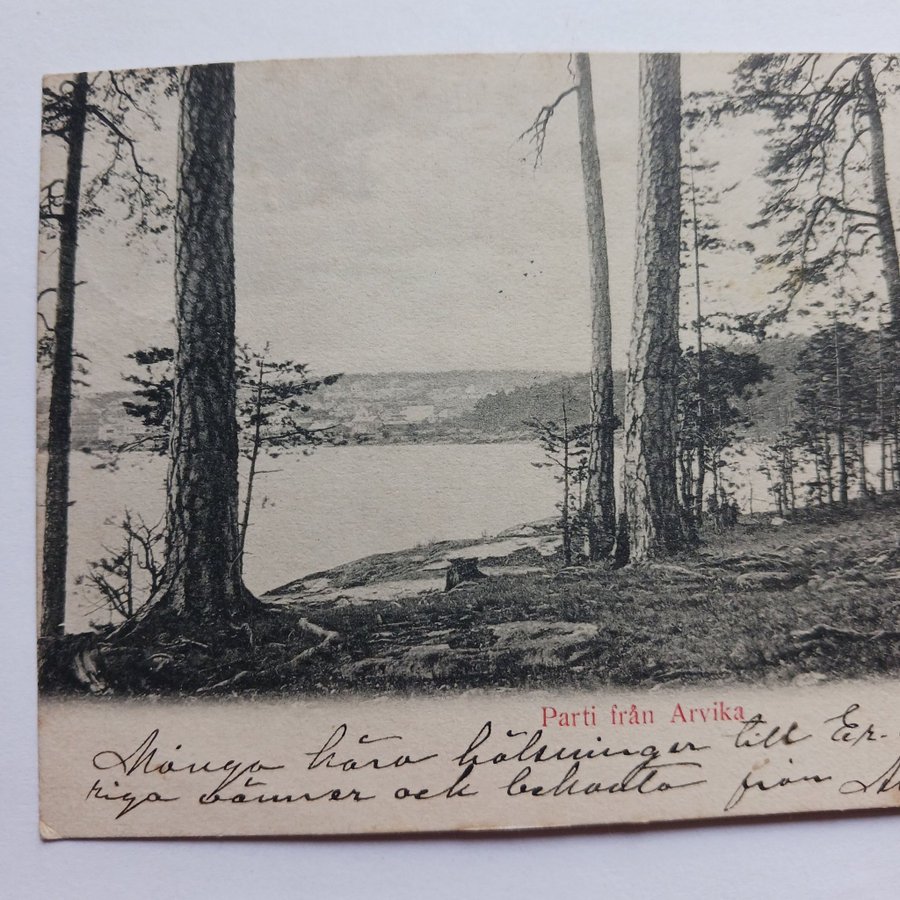 Parti från Arvika
Många kära hälsningar till Er.
riga vänner och bekanta från